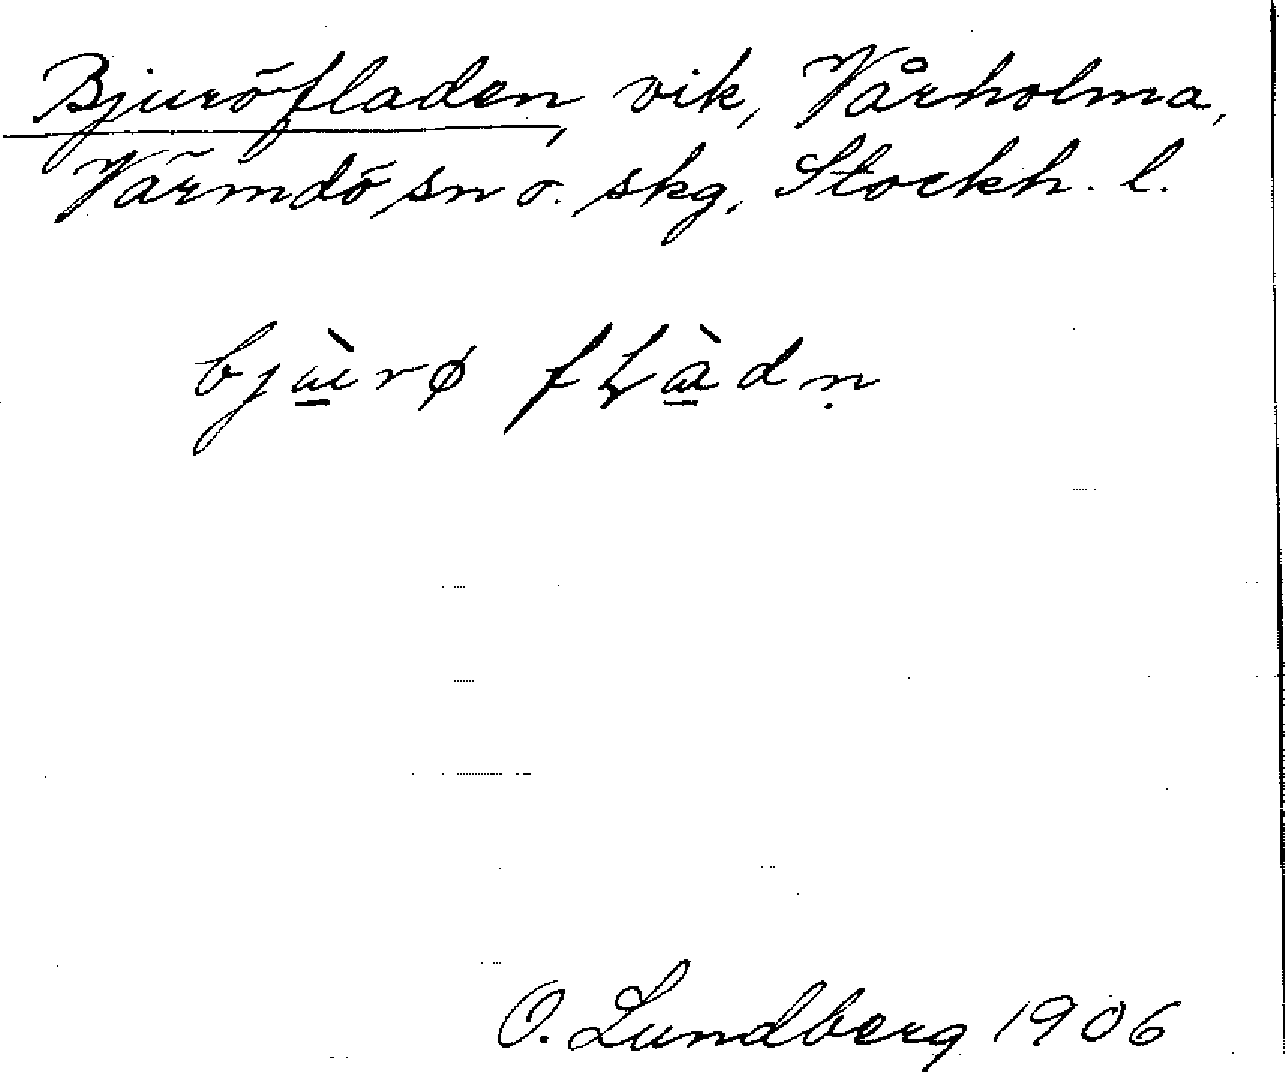 Bjuröfladen, vik, Vårholma,
Värmdö sn o. skg, Stockh. l.
bjù̱rø fɫà̱dṇ
O. Lundberg 1906